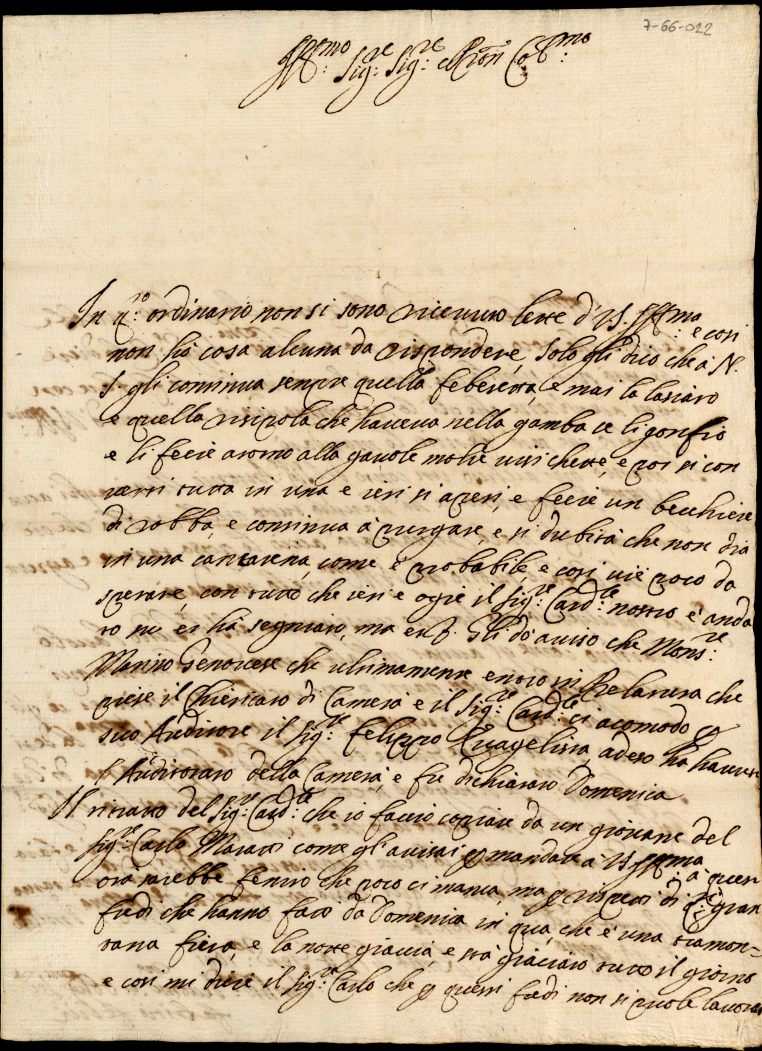 7-66-022
Ill:mo Sig:re Sig:re e Pron Col:mo
In q:to ordinario non si sono ricevuto lette d' VS. Ill:ma e cosi
non hò cosa alcuna da rispondere, solo gli dico che à N.
S. gli continua sempre quella feberetta, e mai la lasciato
e quella risipola che haveva nella gamba se li gonfiò
e li fecie atorno alla gavole molte vesichette, e poi si con
verti tutta in una e ieri si aperse, e fecie un bechiere
di robba, e continua à purgare, e si dubita che non dia
in una cancarena, come è probabile, e cosi vie poco da
sperare, con tutto che ieri e ogie il Sig:re Card:le nostro è anda
to ne ci hà segniato, ma Gli dò aviso che Mons:re
Marino Genovese che ultimamente entrò in Prelatura che
prese il Chiericato di Camera e il Sig:re Card:le ci acomodò p
suo Auditore il Sig:re Felippo Evagelista adeso ha havuto
l'Auditorato della Camera, e fu dichiarato Domenica
Il ritratto del Sig:re Card:le che io faccio copiare da un giovane del
Sig:re Carlo Maratti come gl'avisai p mandare à VS Ill:ma à ques
ora sarebbe fenito che poco ci manca, ma p rispetto di gran
fredi che hanno fatto da Domenica in quà, che è una tramon=
tana fiera, e la notte giaccia e stà giaciato tutto il giorno
e cosi mi disse il Sig:re Carlo che p questi fredi non si puole lavorar